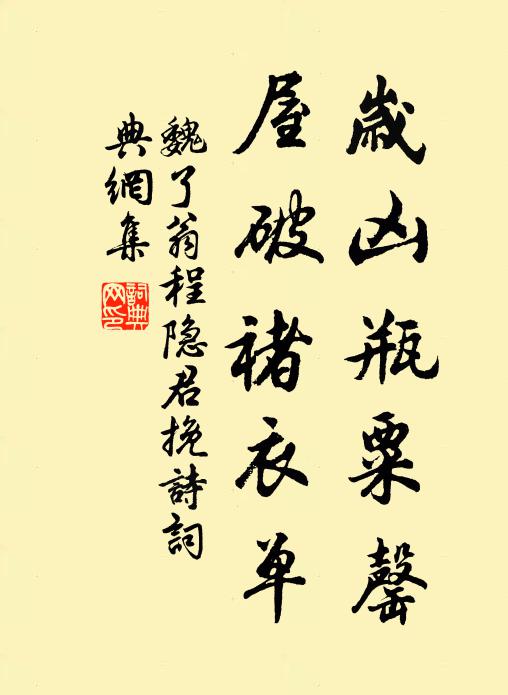 歲凶瓶粟罄
屋破褚衣单
魏了翁程隐君挽詩詞
典網集
詞典网印